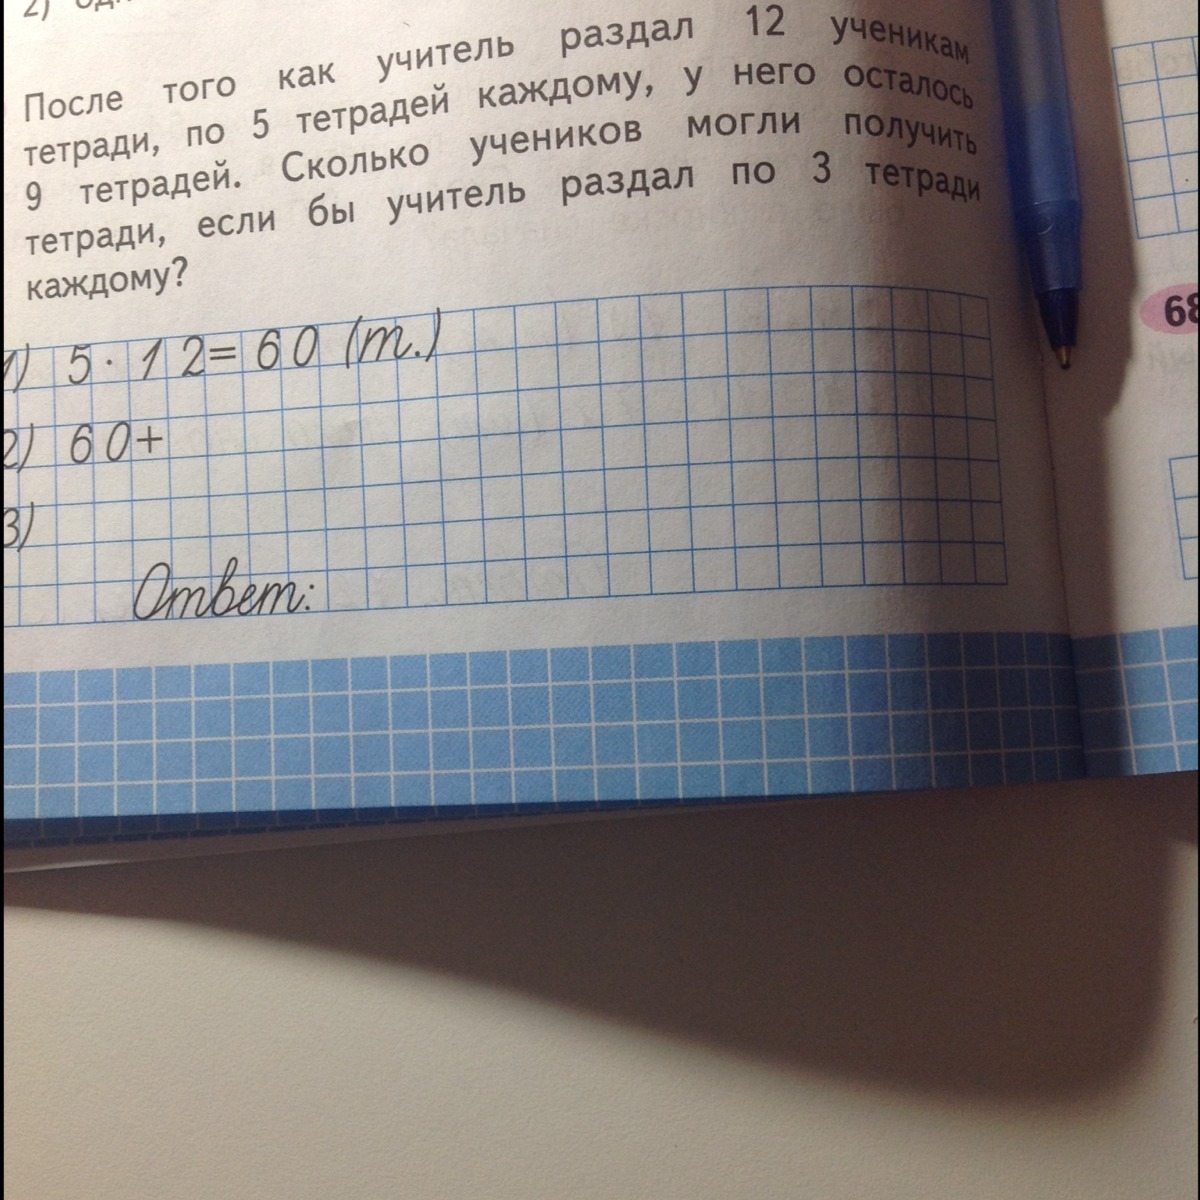 2)
После того как учитель раздал 12 ученикам
тетради, по 5 тетрадей каждому, у него осталось
9 тетрадей. Сколько учеников могли получить
тетради, если бы учитель раздал по 3 тетради
каждому?
1) 5 · 12 = 60 (т.)
2) 60+
3)
Ответ:
68